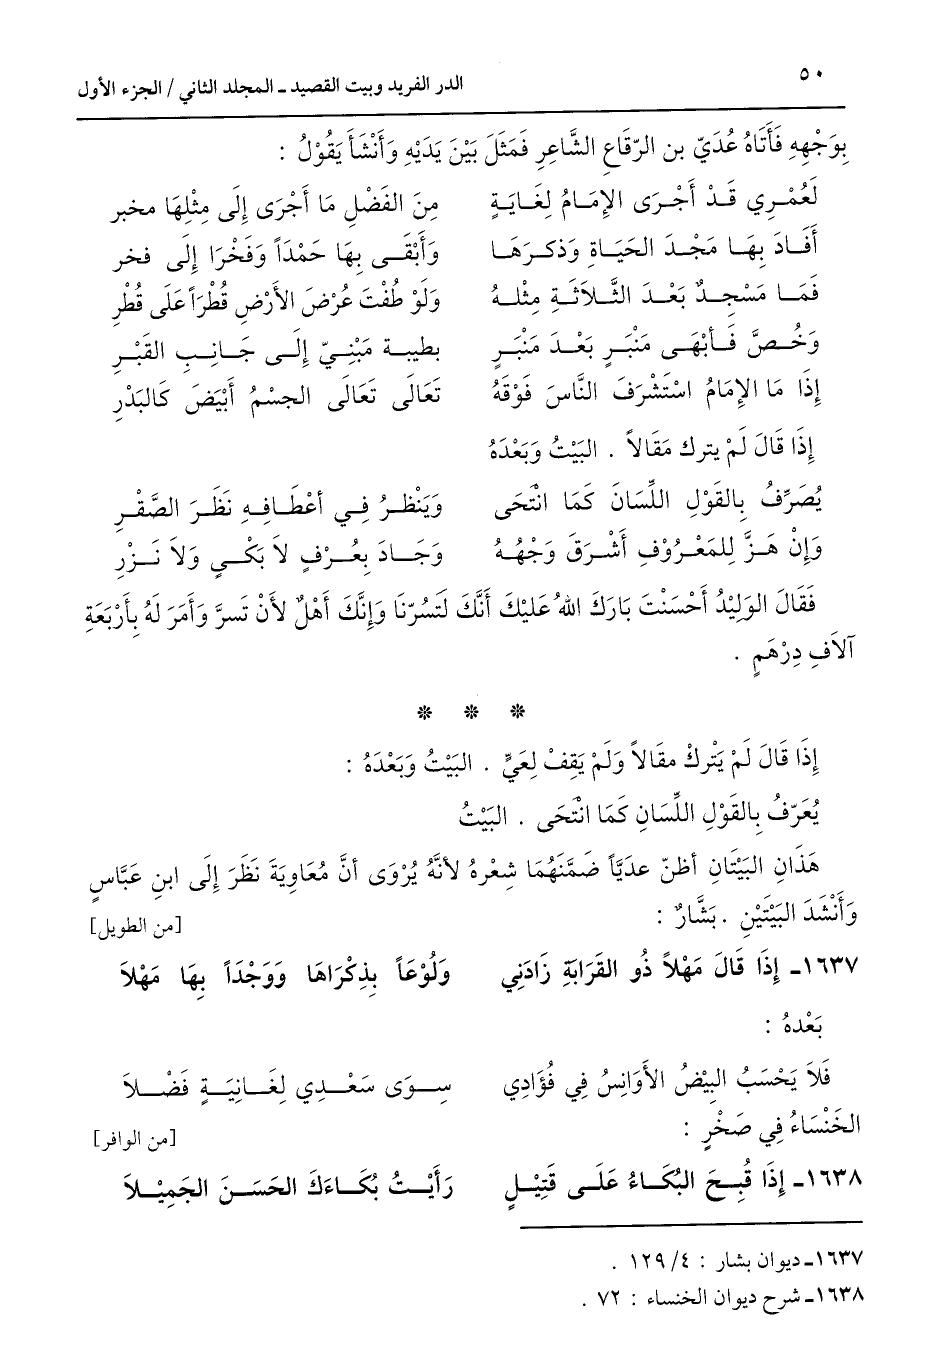 ٥٠
الدر الفريد وبيت القصيد ـ المجلد الثاني / الجزء الأول
بِوَجْهِهِ فَأَتَاهُ عُدَيّ بن الرّقَاعِ الشَّاعِرِ فَمَثَلَ بَيْنَ يَدَيْهِ وَأَنْشَأَ يَقُوْلُ :
لَعُمْرِي قَدْ أَجْرَى الإِمَامُ لِغَايَةٍ مِنَ الفَضْلِ مَا أَجْرَى إِلَى مِثْلِهَا مخبر
أَفَادَ بِهَا مَجْدَ الحَيَاةِ وَذكرَهَا وَأَبْقَى بِهَا حَمْدَاً وَفَخْرَا إِلَى فخر
فَمَا مَسْجِدٌ بَعْدَ الثَّلاَثَةِ مِثْلهُ وَلَوْ طُفْتَ عُرْضَ الأَرْضِ قُطْرَاً عَلَى قُطْرِ
وَخُصَّ فَأَبْهَى مَنْبَرٍ بَعْدَ مَنْبَرٍ بطيبة مَبْنِيّ إِلَى جَانِبِ القَبْرِ
إِذَا مَا الإِمَامُ اسْتَشْرَفَ النَّاسَ فَوْقَهُ تَعَالَى تَعَالَى الجسْمُ أَبْيَضَ كَالبَدْرِ
إِذَا قَالَ لَمْ يترك مَقَالاً . البَيْتُ وَبَعْدَهُ
يُصَرِّفُ بِالقَوْلِ اللِّسَانَ كَمَا انْتَحَى وَيَنْظرُ فِي أَعْطَافِهِ نَظَرَ الصَّقْرِ
وَإِنْ هَزَّ لِلمَعْرُوْفِ أَشْرَقَ وَجْهُهُ وَجَادَ بِعُرْفٍ لاَ بَكْيٍ وَلاَ نَزْرِ
فَقَالَ الوَلِيْدُ أَحْسَنْتَ بَارَكَ اللهُ عَلَيْكَ أَنَّكَ لَتَسُرّنَا وَإِنَّكَ أَهْلٌ لأَنْ تَسرَّ وَأَمَرَ لَهُ بِأَرْبَعَةِ
آلاَفِ دِرْهَمٍ .
* * *
إِذَا قَالَ لَمْ يَتْركْ مقَالاً وَلَمْ يَقِفْ لِعَيٍّ . البَيْتُ وَبَعْدَهُ :
يُعَرّفُ بِالقَوْلِ اللِّسَانِ كَمَا انْتَحَى . البَيْتُ
هَذَانِ البَيْتَانِ أظنّ عديَّاً ضَمَّنَهُمَا شِعْرهُ لأَنَّهُ يُرْوَى أنَّ مُعَاوِيَةَ نَظَرَ إِلَى ابنِ عَبَّاسٍ
وَأَنْشَدَ البَيْتَيْنِ . بَشَّارٌ : [من الطويل]
١٦٣٧ـ إِذَا قَالَ مَهْلاً ذُو القَرَابَةِ زَادَنِي وَلُوْعَاً بِذِكْرَاهَا وَوَجْدَاً بِهَا مَهْلاَ
بَعْدهُ :
فَلاَ يَحْسَبُ البِيْضُ الأَوَانِسُ فِي فُؤَادِي سِوَى سَعْدِي لِغَانِيَةٍ فَضْلاَ
الخَنْسَاءُ فِي صَخْرٍ : [من الوافر]
١٦٣٨ـ إِذَا قُبِحَ البُكَاءُ عَلَى قَتِيْلٍ رَأَيْتُ بُكَاءَكَ الحَسَنَ الجَمِيْلاَ
١٦٣٧ـ ديوان بشار : ٤/ ١٢٩ .
١٦٣٨ـ شرح ديوان الخنساء : ٧٢ .